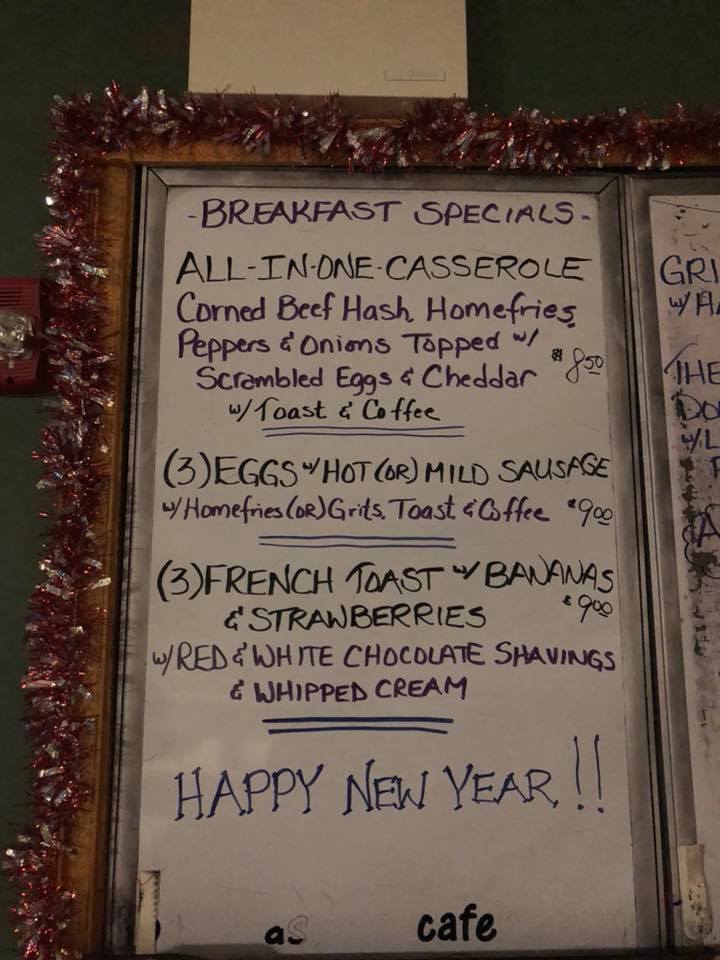 -BREAKFAST SPECIALS-
ALL-IN-ONE-CASSEROLE
Corned Beef Hash, Homefries,
Peppers & Onions Topped w/
Scrambled Eggs & Cheddar $8.50
w/Toast & Coffee
(3)EGGS w/HOT(OR)MILD SAUSAGE
w/Homefries(OR)Grits, Toast & Coffee $9.00
(3)FRENCH TOAST w/ BANANAS
& STRAWBERRIES $9.00
w/RED & WHITE CHOCOLATE SHAVINGS
& WHIPPED CREAM
HAPPY NEW YEAR!!
as cafe
GRI
THE